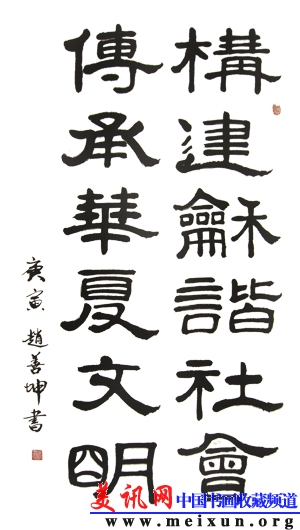 構建龢諧社會
傳承華夏文明
庚寅 趙善坤書
美讯网 中国书画收藏频道
www.meixun.org